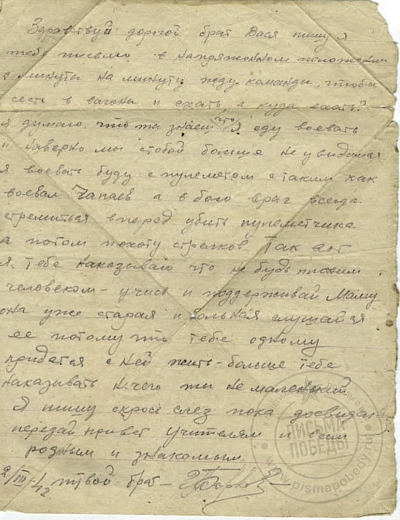 Здравствуй дорогой брат Вася пишу я
тебе письмо в напряжонном положении
с минуты на минуту жду команды, чтобы
сесть в вагоны и ехать, а куда ехать?
Я думаю что ты знаеш что я еду воевать
и наверно мы стобой больше не увидимся
Я воевать буду с пулеметом с таким как
воевал Чапаев а в бою враг всегда
стремиться вперед убить пулеметчика
а потом пехоту стрелков. Так вот
я тебе наказываю что не будь плохим
человеком – учись и поддерживай Маму
она уже старая и больная слушайся
ее потому что тебе одному
придется с ней жить – больше тебе
наказывать нечего ты не маленький
Я пишу скрозь слез пока досвидан
передай привет учителям и всем
родным и знакомым
42 твой брат –
ПИСЬМА ПОБЕДЫ
www.pismapobedy.ru